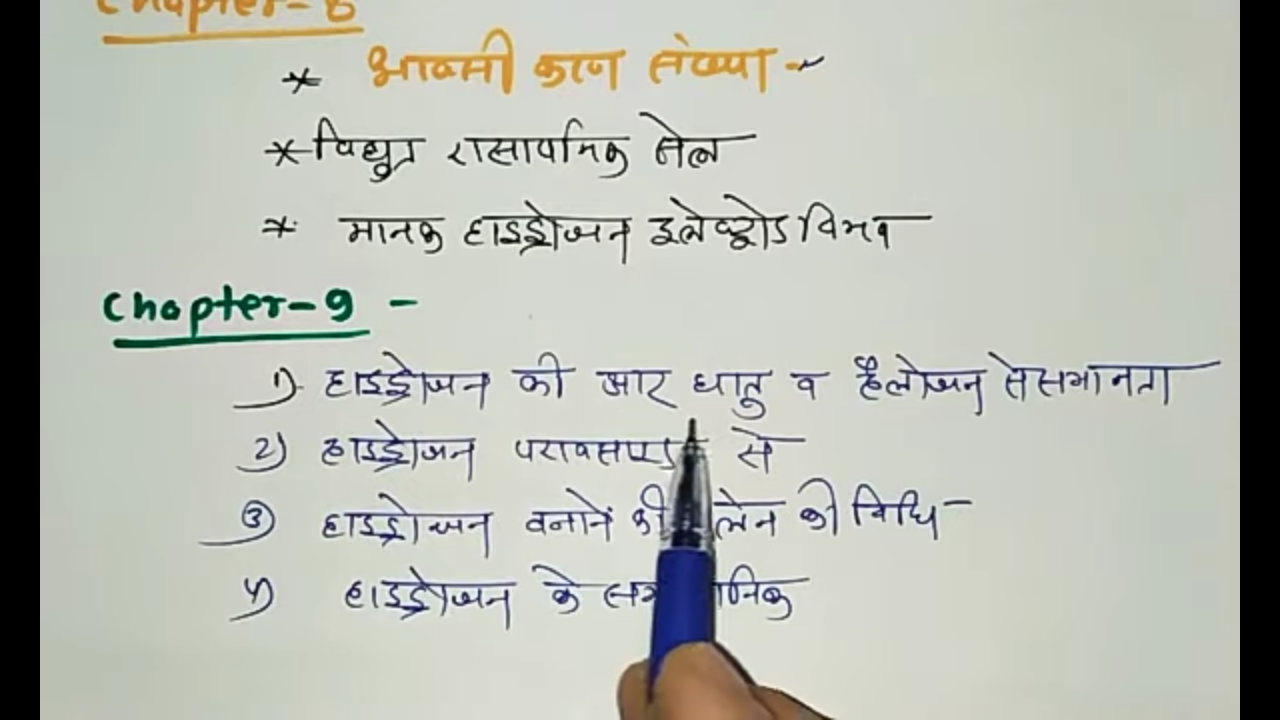 Chapter-8
* आक्सी करण संख्या -
* विद्युत रासायनिक सेल
* मानक हाइड्रोजन इलेक्ट्रोड विभव
Chapter-9 -
1) हाइड्रोजन की क्षार धातु व हैलोजन से समानता
2) हाइड्रोजन से
3) हाइड्रोजन बनाने की लेन की विधि -
4) हाइड्रोजन के